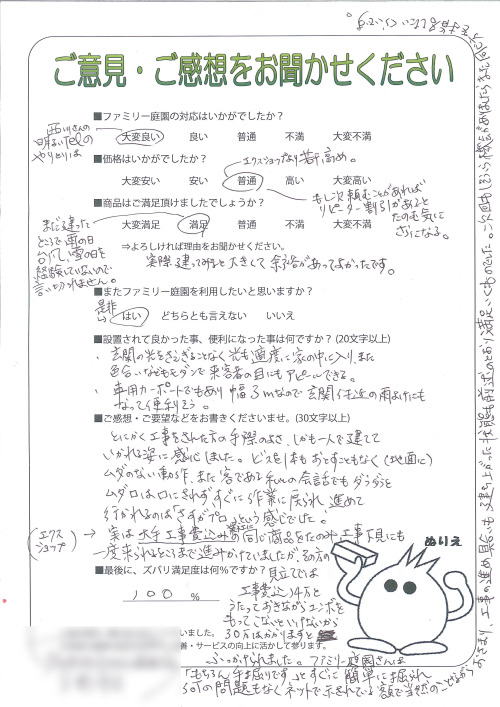 ご意見・ご感想をお聞かせください
■ファミリー庭園の対応はいかがでしたか？
西川さんの
明るいTELの
やりとりは
大変良い 良い 普通 不満 大変不満
■価格はいかがでしたか？
エクスショップより若干高め。
大変安い 安い 普通 高い 大変高い
■商品はご満足頂けましたでしょうか？
もし次頼むことがあれば
リピーター割引があると
大変満足 満足 普通 不満 大変不満
まだ建った
ところで雨の日
台風、雪の日を
経験していないので
言い切れません。
⇒よろしければ理由をお聞かせください。
実際建ってみると大きくて余裕があってよかったです。
■またファミリー庭園を利用したいと思いますか？
是非
はい どちらとも言えない いいえ
■設置されて良かった事、便利になった事は何ですか？(20文字以上)
・玄関の光をさえぎることなく光も適度に家の中に入り、また
色合いなどもモダンで来客者の目にもアピールできる。
・車用カーポートでもあり幅3mなので玄関付近の雨よけにも
なって便利そう。
■ご感想・ご要望などをお書きくださいませ。(30文字以上)
とにかく工事をされた方の手際のよさ、しかも一人で建てて
いかれる姿に感心しました。ビスを1本もおとすこともなく(地面に)
ムダのない動き、また客である私との会話でもダラダラと
ムダ口は口にされずすぐに作業に戻られ進めて
行かれるのは「さすがプロ」という感じでした。
(エクスショップ)→実は大手工事費込みの同じ商品をたのみ工事下見にも
一度来られるところまで進みかけていましたが、その方の
■最後に、ズバリ満足度は何％ですか？
見立てでは
100 %
工事費込14万と
うたっておきながらユンボを
もってこないといけないから
30万はかかりますと
ふっかけられました。ファミリー庭園さんは
「もちろん手掘りです」とすぐに簡単に掘られ
何の問題もなくネットで示されている額で当然のごとく
おさまり、工事の進め具合いも建ち上がった状態も
ぬりえ